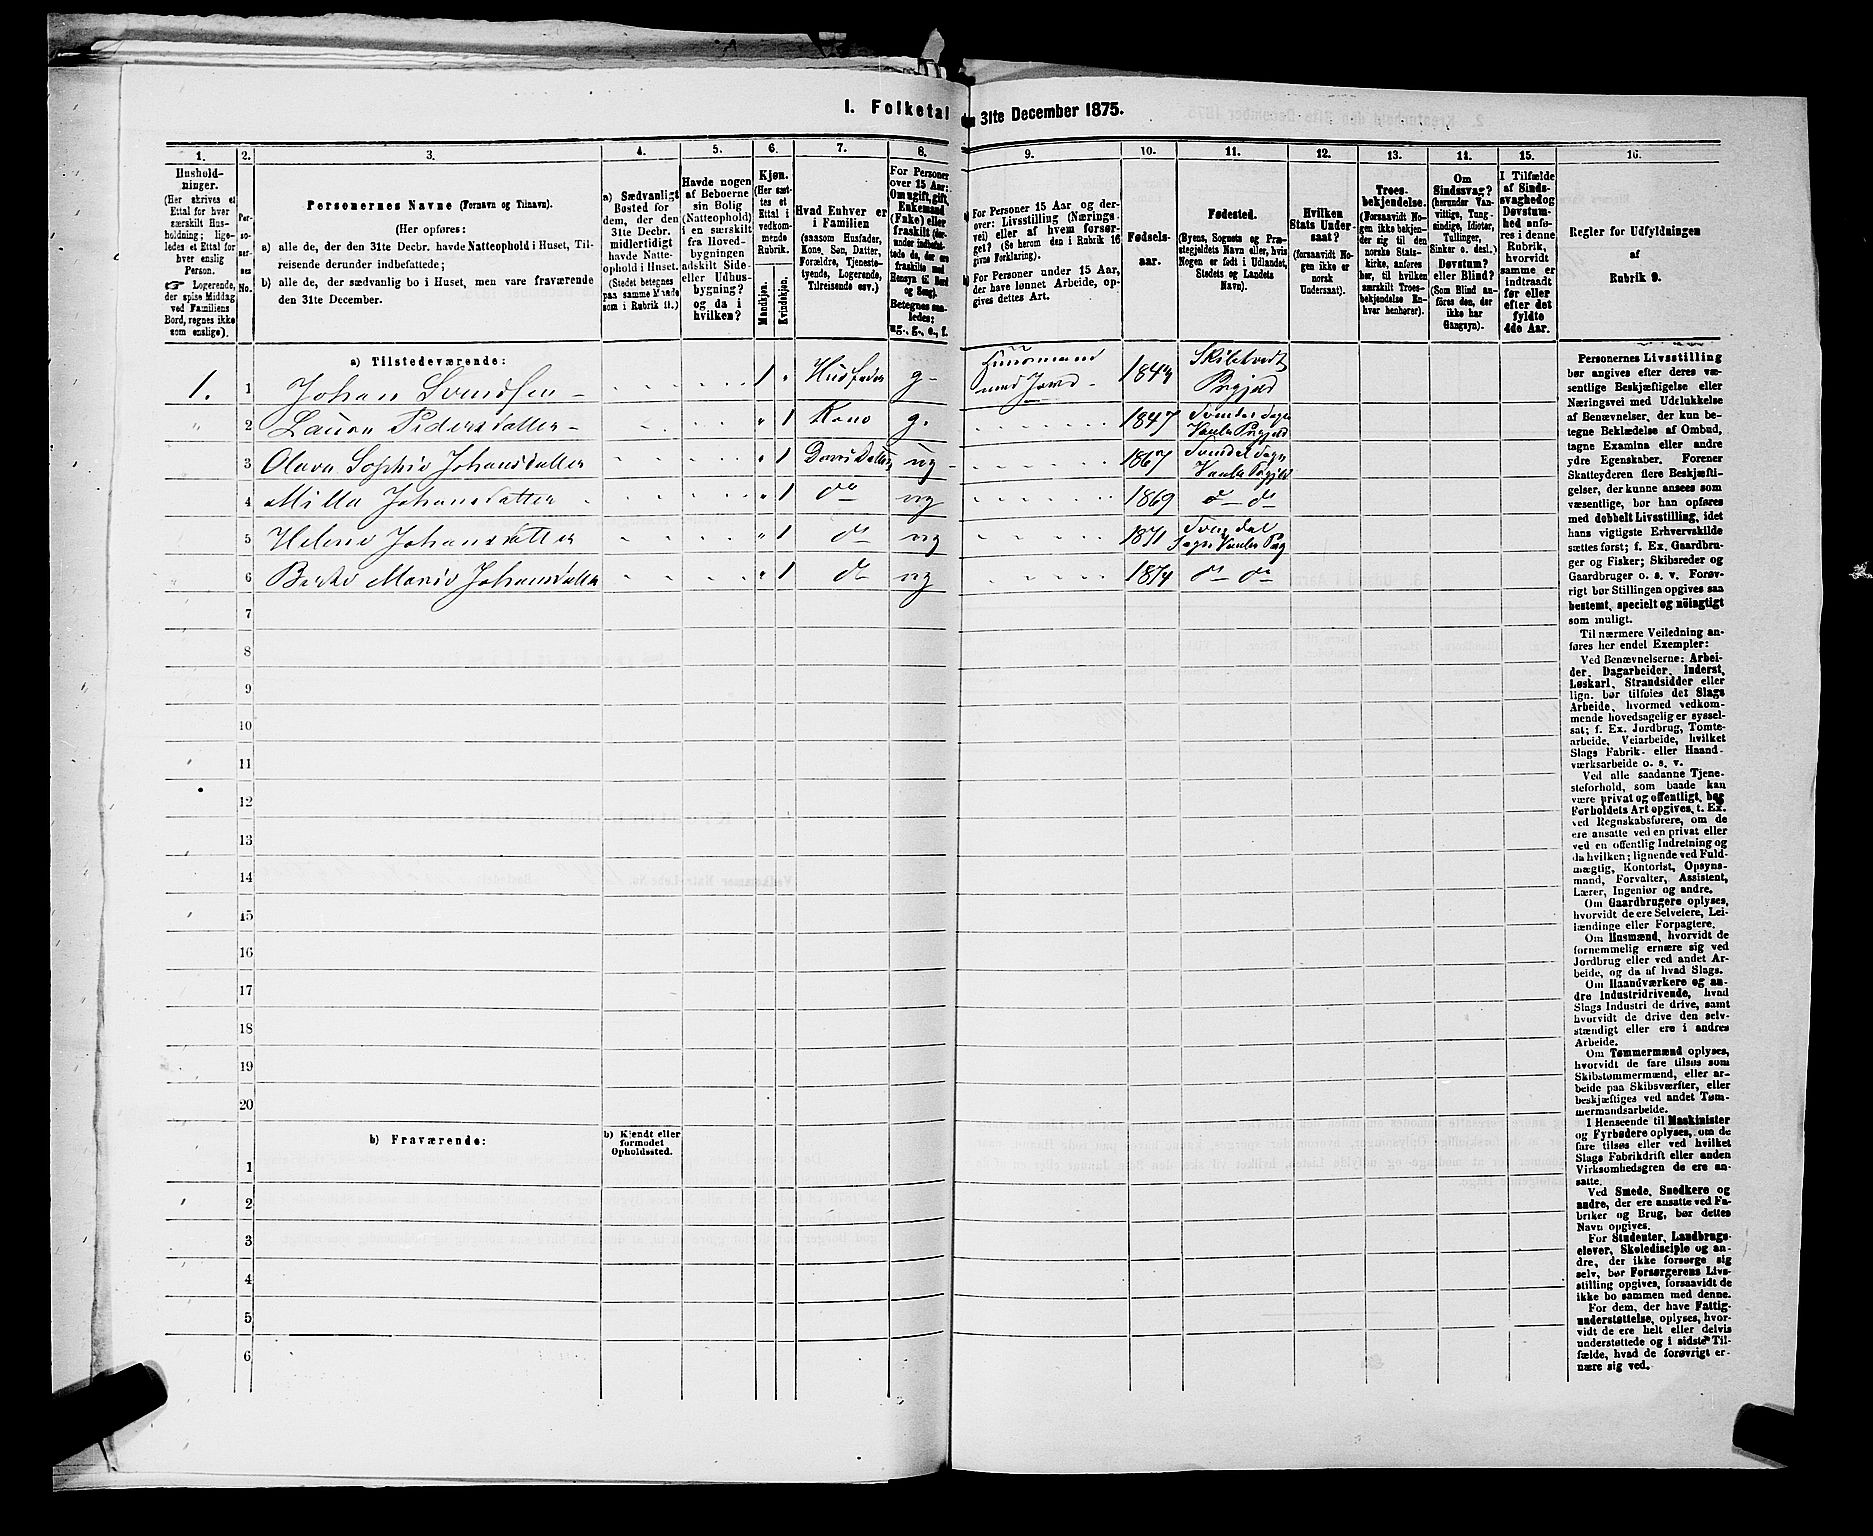 1. Folketal den 31te December 1875.
1.
2.
3.
4.
5.
6.
7.
8.
9.
10.
11.
12.
13.
14.
15.
16.
Hushold-
ninger.
(Her skrives et
Ettal for hver
særskilt Hus-
holdning; lige-
ledes et Ettal for
hver enslig
Person.
Logerende,
der spise Middag
ved Familiens
Bord, regnes ikke
som enslige).
Per-
so-
ner-
nes
No.
Personernes Navne (Fornavn og Tilnavn).
(Her opføres:
a) alle de, der den 31te Decbr. havde Natteophold i Huset, Til-
reisende derunder indbefattede;
b) alle de, der sædvanlig bo i Huset, men vare fraværende
den 31te December.
a) Sædvanligt
Bosted for
dem, der den
31te Decbr.
midlertidigt
havde Natte-
ophold i Huset.
(Stedet betegnes
paa samme Maade
som i Rubrik 11.)
Havde nogen
af Beboerne
sin Bolig
(Natteophold)
i en særskilt
fra Hoved-
bygningen
adskilt Side-
eller Udhus-
bygning?
og da i
hvilken?
Kjøn.
(Her sæt-
tes et
Ettal i
vedkom-
mende
Rubrik.
Mandkjøn.
Kvindekjøn.
Hvad Enhver er
i Familien
(saasom Husfader,
Kone, Søn, Datter,
Forældre, Tjeneste-
tyende, Logerende,
Tilreisende osv.)
For Personer
over 15 Aar:
Om ugift, gift,
Enkemand
(Enke) eller
fraskilt (der-
under indbefat-
tede de, der ere
fraskilte med
Hensyn til Bord
og Seng).
Betegnes saa-
ledes:
ug., g., e., f.
a) For Personer 15 Aar og der-
over: Livsstilling (Nærings-
vei) eller af hvem forsør-
get? (Se herom den i Rubrik 16
givne Forklaring).
b) For Personer under 15 Aar,
der have lønnet Arbeide, op-
gives dettes Art.
Fødsels-
aar.
Fødested.
(Byens, Sognets og Præ-
stegjeldets Navn eller, hvis
Nogen er født i Udlandet,
Stedets og Landets
Navn).
Hvilken
Stats Under-
saat?
(forsaavidt No-
gen ikke er
norsk
Undersaat).
Troes-
bekjendelse.
(Forsaavidt No-
gen ikke bekjen-
der sig til den
norske Stats-
kirke, anføres
her, til hvilken
særskilt Troes-
bekjendelse En-
hver henhører).
Om
Sindssvag?
(herunder Van-
vittige, Tung-
sindige, Idioter,
Tullinger,
Sinker o. desl.)
Døvstum?
eller Blind?
(Som Blind an-
føres den, der
ikke har
Gangsyn).
I Tilfælde
af Sinds-
svaghed og
Døvstum-
hed anfø-
res i denne
Rubrik,
hvorvidt
samme er
indtraadt
før eller
efter det
fyldte
4de Aar.
Regler for Udfyldningen
af
Rubrik 9.
a) Tilstedeværende:
1. 1 Johan Svendsen 1 Husfader g. Huusmand med Jord 1843 Skibtvedt Prgjeld
2 Laura Pedersdatter 1 Kone g. 1847 Svindal Sogn Vaaler Prgjeld
3 Olava Sophie Johansdatter 1 Deres Datter ug 1867 Svindal Sogn Vaaler Prgjld
4 Milla Johansdatter 1 do ug 1869 do do
5 Helene Johansdatter 1 do ug 1871 Svindal Sogn Vaaler Prg
6 Berthe Marie Johansdatter 1 do ug 1874 do do
7
8
9
10
11
12
13
14
15
16
17
18
19
20
b) Fraværende:
b) Kjendt eller
formodet
Opholdssted.
1
2
3
4
5
6
Personernes Livsstilling
bør angives efter deres væ-
sentlige Beskjæftigelse eller
Næringsvei med Udelukkelse
af Benævnelser, der kun be-
tegne Beklædelse af Ombud,
tagne Examina eller andre
ydre Egenskaber. Forener
Skatteyderen flere Beskjæfti-
gelser, der kunne ansees som
væsentlige, bør han opføres
med dobbelt Livsstilling, idet
hans vigtigste Erhvervskilde
sættes først; f. Ex. Gaardbru-
ger og Fisker; Skibsreder og
Gaardbruger o. s. v. Forøv-
rigt bør Stillingen opgives saa
bestemt, specielt og nöiagtigt
som muligt.
Til nærmere Veiledning an-
føres her endel Exempler:
Ved Benævnelserne: Arbei-
der, Dagarbeider, Inderst,
Løskarl, Strandsidder eller
lign. bør tilføies det Slags
Arbeide, hvormed vedkom-
mende hovedsagelig er syssel-
sat; f. Ex. Jordbrug, Tomte-
arbeide, Veiarbeide, hvilket
Slags Fabrik- eller Haand-
værksarbeide o. s. v.
Ved alle saadanne Tjene-
steforhold, som baade kan
være privat og offentligt, bør
Forholdets Art opgives, t. Ex.
ved Regnskabsførere, om de
ere ansatte ved en privat eller
ved en offentlig Indretning og
da hvilken; lignende ved Fuld-
mægtig, Kontorist, Opsyns-
mand, Forvalter, Assistent,
Lærer, Ingeniør og andre.
Om Gaardbrugere oplyses,
hvorvidt de ere Selveiere, Lei-
lændinge eller Forpagtere.
Om Husmænd, hvorvidt de
fornemmelig ernære sig ved
Jordbrug eller ved andet Ar-
beide, og da af hvad Slags.
Om Haandværkere og an-
dre Industridrivende, hvad
Slags Industri de drive, samt
hvorvidt de drive den selv-
stændigt eller ere i andres
Arbeide.
Om Tømmermænd oplyses,
hvorvidt de fare tilsøs som
Skibstømmermænd, eller ar-
beide paa Skibsværfter, eller
beskjæftiges ved andet Tøm-
mermandsarbeide.
I Henseende til Maskinister
og Fyrbødere oplyses, om de
fare tilsøs eller ved hvilket
Slags Fabrikdrift eller anden
Virksomhedsgren de ere an-
satte.
Ved Smede, Snedkere og
andre, der ere ansatte ved Fa-
briker og Brug, bør dettes
Navn opgives.
For Studenter, Landbrugs-
elever, Skoledisciple og an-
dre, der ikke forsørge sig
selv, bør Forsørgerens Livs-
stilling opgives, forsaavidt de
ikke bo sammen med denne.
For dem, der have Fattig-
understøttelse, oplyses, hvor-
vidt de ere helt eller delvis
understøttede og i sidste Til-
fælde, hvad de forøvrigt er-
nære sig ved.